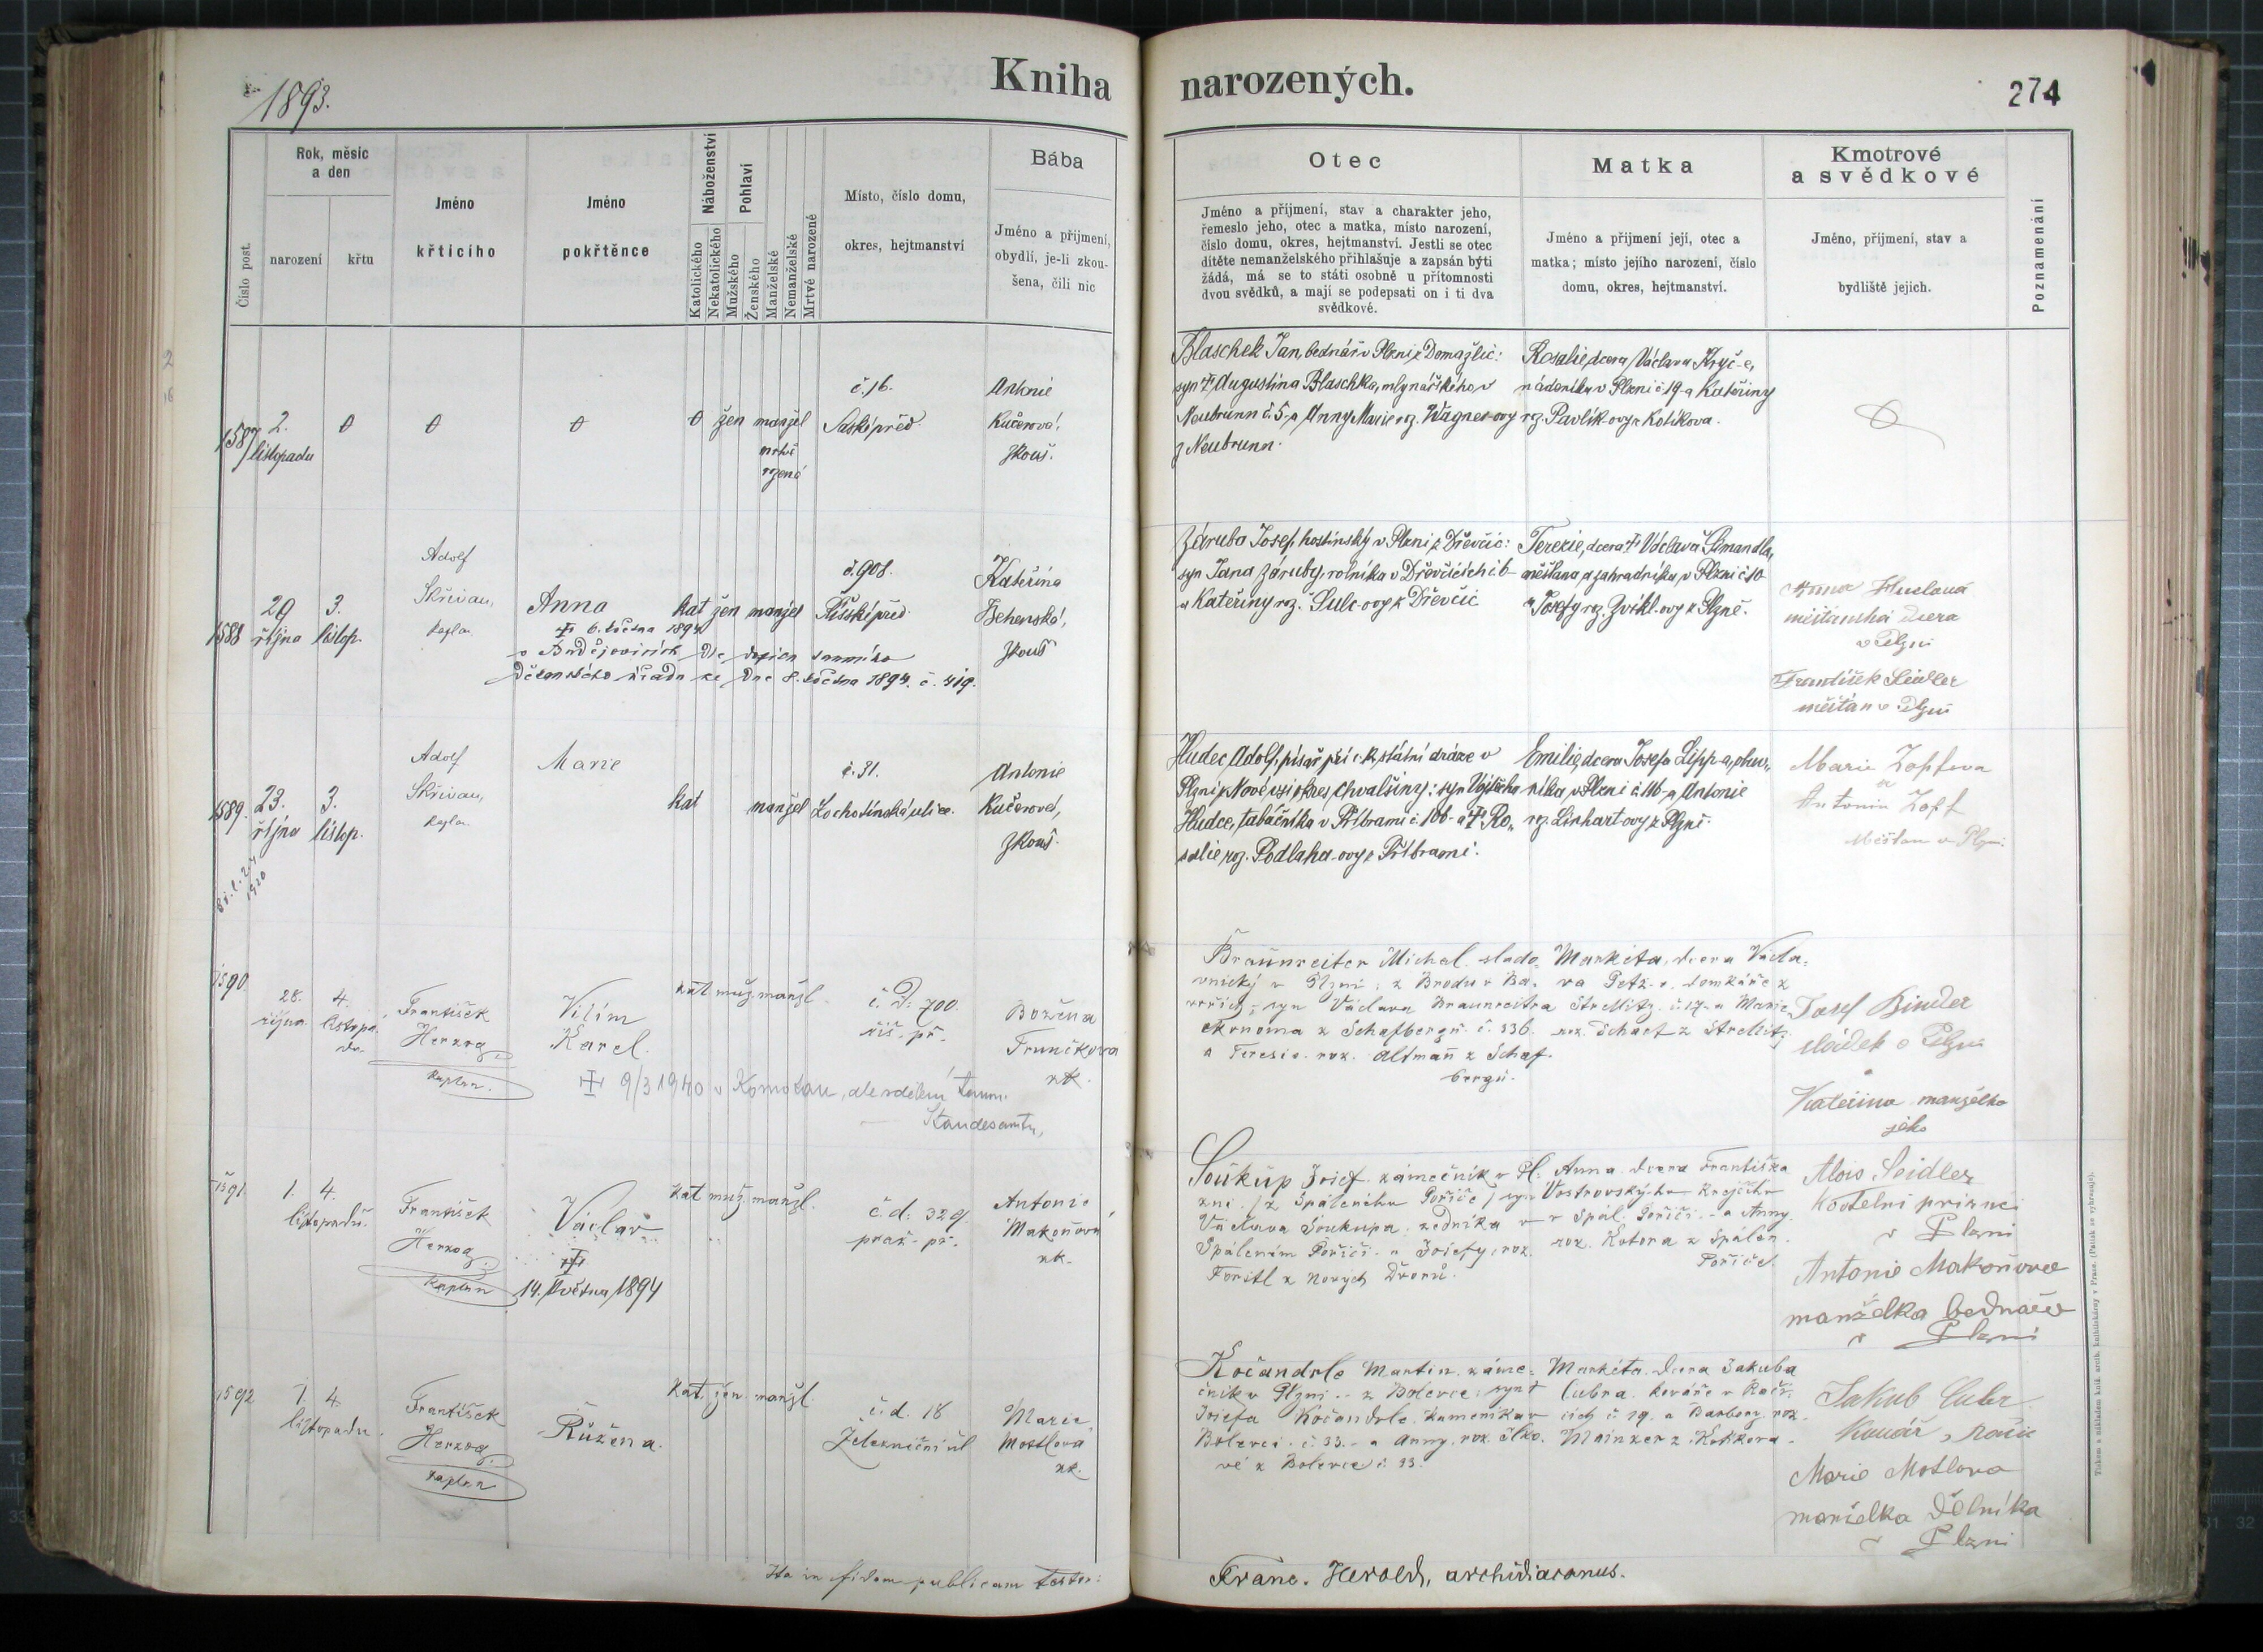 1893.
Kniha narozených.
274
Číslo post.
Rok, měsíc
a den
narození
křtu
Jméno
křticího
Jméno
pokřtěnce
Náboženství
Katolického
Nekatolického
Pohlaví
Mužského
Ženského
Manželské
Nemanželské
Mrtvě narozené
Místo, číslo domu,
okres, hejtmanství
Bába
Jméno a příjmení,
obydlí, je-li zkou-
šena, čili nic
Otec
Jméno a příjmení, stav a charakter jeho,
řemeslo jeho, otec a matka, místo narození,
číslo domu, okres, hejtmanství. Jestli se otec
dítěte nemanželského přihlašuje a zapsán býti
žádá, má se to státi osobně u přítomnosti
dvou svědků, a mají se podepsati on i ti dva
svědkové.
Matka
Jméno a příjmení její, otec a
matka; místo jejího narození, číslo
domu, okres, hejtmanství.
Kmotrové
a svědkové
Jméno, příjmení, stav a
bydliště jejich.
Poznamenání
1587
2.
listopadu
žen manžel
mrtvě
rzené
č. 16.
Saské před.
Antonie
Kučerová,
zkouš.
Blaschek Jan, bednář v Plzni z Domažlic:
syn † Augustina Blaschka, mlynářského v
Neubrunn č. 5 a Anny Marie roz. Wagner-ovy
z Neubrunn.
Rosalie, dcera Václava Kryč-e,
nádeníka v Plzni č. 19 a Kateřiny
rz. Pavlík-ovy z Kolíkova.
1588
29
října
3.
listop.
Adolf
Skřivan,
kapla.
Anna
† 6. května 1894
v Andějovicích dle dopisu tamního
děkanského úřadu ze dne 8. května 1894. č. 419.
kat žen manžel
č. 908.
Říšské před.
Kateřina
Behenská,
zkouš
Záruba Josef, hostinský v Plzni z Dřevčic:
syn Jana Záruby, rolníka v Dřevčicích č. 6
a Kateřiny roz. Šulc-ovy z Dřevčic
Terezie, dcera † Václava Šimandla,
měšťana a zahradníka v Plzni č. 10
a Josefy roz. Zvikl-ovy z Plzně.
Anna Huslová
měšťanská dcera
v Plzni
František Seidler
měšťan v Plzni
1589.
23.
října
3.
listop.
Adolf
Skřivan,
kapla.
Marie
kat
manžel
č. 31.
Lochotínská ulice.
Antonie
Kučerová,
zkouš.
Hudec Adolf, písař při c. k. státní dráze v
Plzni z Nové vsi okres Chvalšiny: syn Vojtěcha
Hudce, tabáčníka v Příbrami č. 106 a † Ro„
salie roz. Podlaha-ovy z Příbrami.
Emilie, dcera Josefa Lipp-a,
níka v Plzni č. 116 a Antonie
rz. Linhart-ovy z Plzně.
Marie Zopfova
a
Antonin Zopf
Měšťan v Plzni.
1590.
28.
října.
4.
listopa.
du.
František
Herzog
kaplan.
Vilím
Karel.
† 9/3 1940 v Komotau, dle sdělení tamn.
Standesamtu,
kat. muž. manžl.
č. D. 700.
řiš. př.
Božena
Trunčkova
zk.
Braunreiter Michal, slado-
vnický v Plzni: z Brodu v Ba-
vořích: syn Václava Braunreitra
ekonoma z Schafbergu č. 336.
a Teresie roz. Altmañ z Schaf-
bergu.
Markéta, dcera Václa-
va Petz. domkáře z
Strellitz č. 17. a Marie
roz. Schart z Strellitz
Josef Binder
sládek v Plzni
Kateřina manželka
jeho
1591
1.
4.
listopadu.
František
Herzog
kaplan
Václav
†
14. Května 1894
kat. muž. manžl.
č. d: 329.
praž. př.
Antonie
Makoňová
zk.
Soukup Josef zámečník v Pl-
zni /z Spáleného Poříčí/ syn
Václava Soukupa, zedníka v
Spáleném Poříčí a Josefy, roz.
Foritl z Nových Dvorů.
Anna dcera Františka
Vostrovský-ho krejčího
v Spál. Poříčí - a Anny
roz. Kotora z Spálen.
Poříčí.
Alois Seidler
Kostelni prisuci
v Plzni
Antonie Makoňova
manželka bednáře
v Plzni
1592
1.
4.
listopadu.
František
Herzog
kaplan
Růžena.
kat. žen. manžl.
č. d. 18
Železniční ul
Marie
Mostlová
zk.
Kočandrle Martin, záme-
čník v Plzni - z Bolevce: syn †
Josefa Kočandrle, kameníka v
Bolevci č. 33. - a Anny, roz. Ciko-
vé z Bolevce č. 33.
Markéta dcera Jakuba
Cubra, kováře v Rači-
cích č. 19. a Barbory roz.
Mainzer z Kokkora.
Jakub Cubr
Kovář, Račic
Marie Mostlova
manželka dělníka
v Plzni
Ita in fidem publicam testor:
Franc. Herold, archidiaconus.